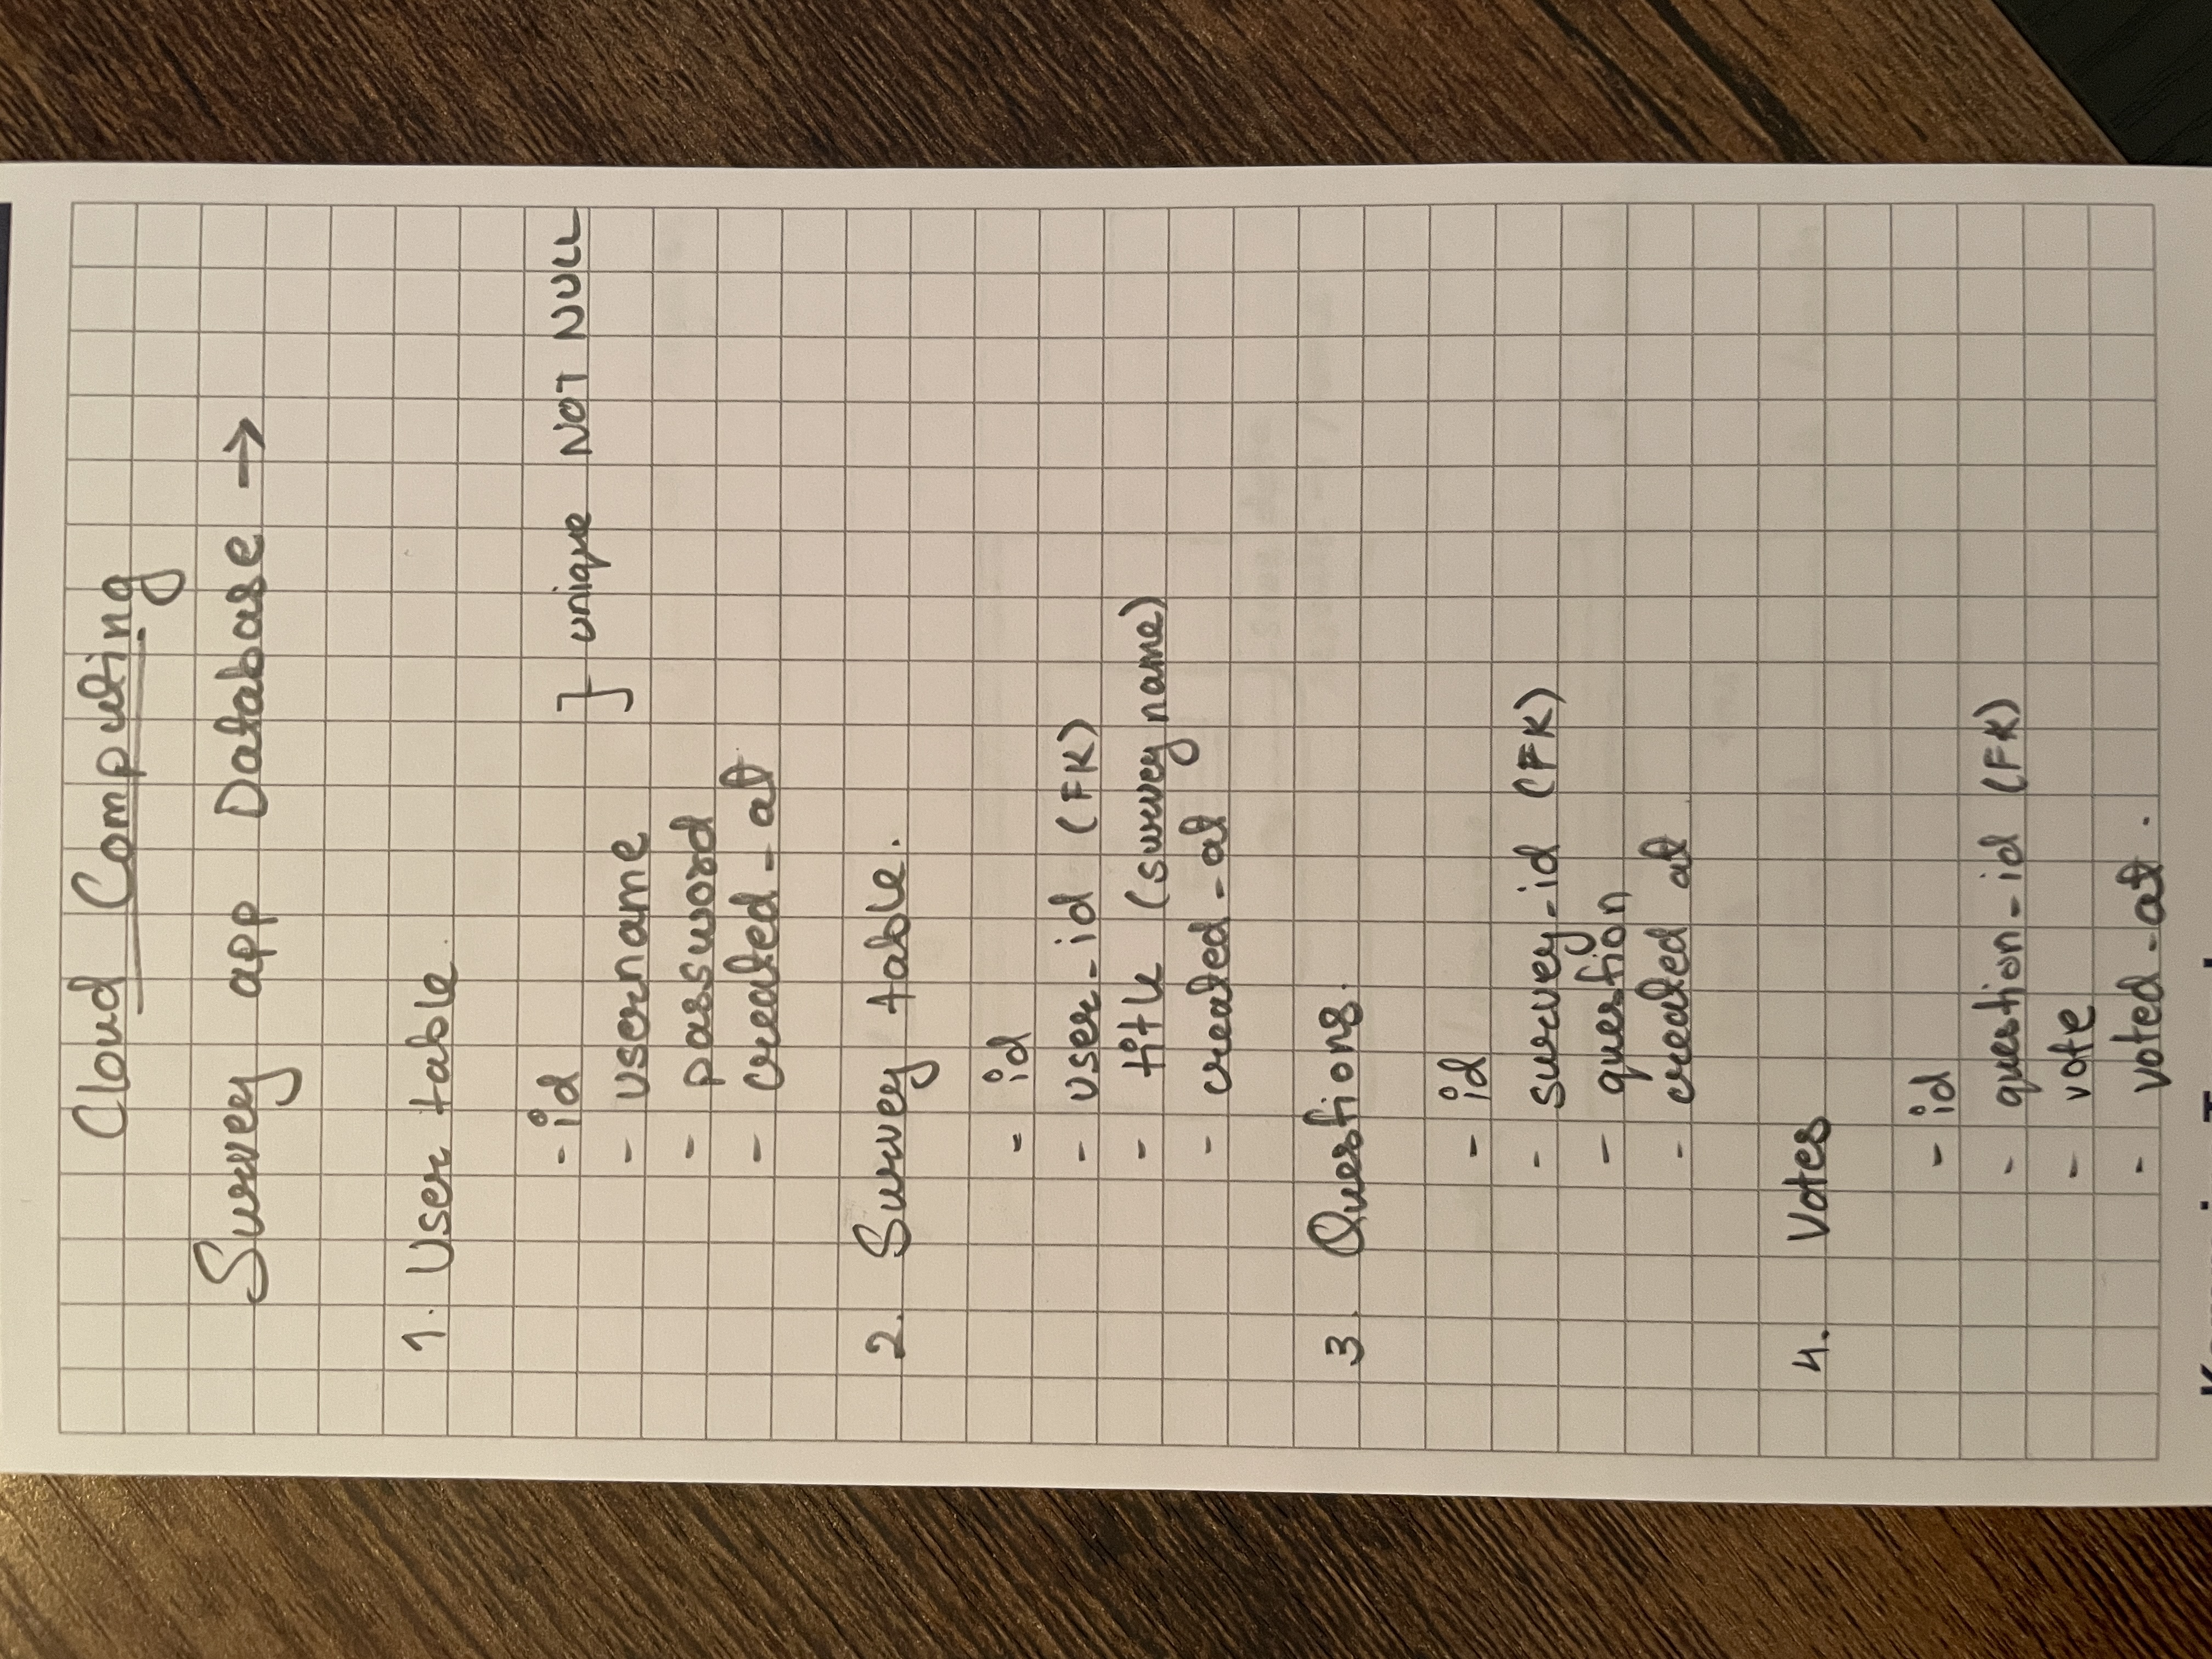 Cloud Computing
Survey app Database →
1. User table.
- id } unique NOT NULL
- username
- password
- created_at
2. Survey table.
- id
- user_id (FK)
- title (survey name)
- created_at
3. Questions.
- id
- survey_id (FK)
- question
- created at
4. Votes
- id
- question_id (FK)
- vote
- voted_at.